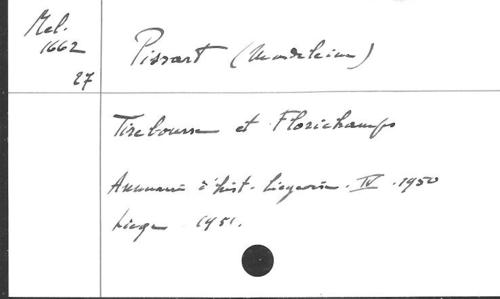 Mel.
1662
27
Pissart (Madeleine)
Tirebourse et Florichamps
Annuaire d'hist. liégeoise. IV. 1950
Liège 1951.